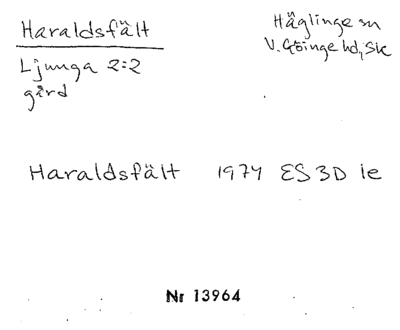 Haraldsfält
Häglinge sn
V. Göinge hd, Sk
Ljunga 2:2
gård
Haraldsfält 1974 ES 3D 1e
Nr 13964